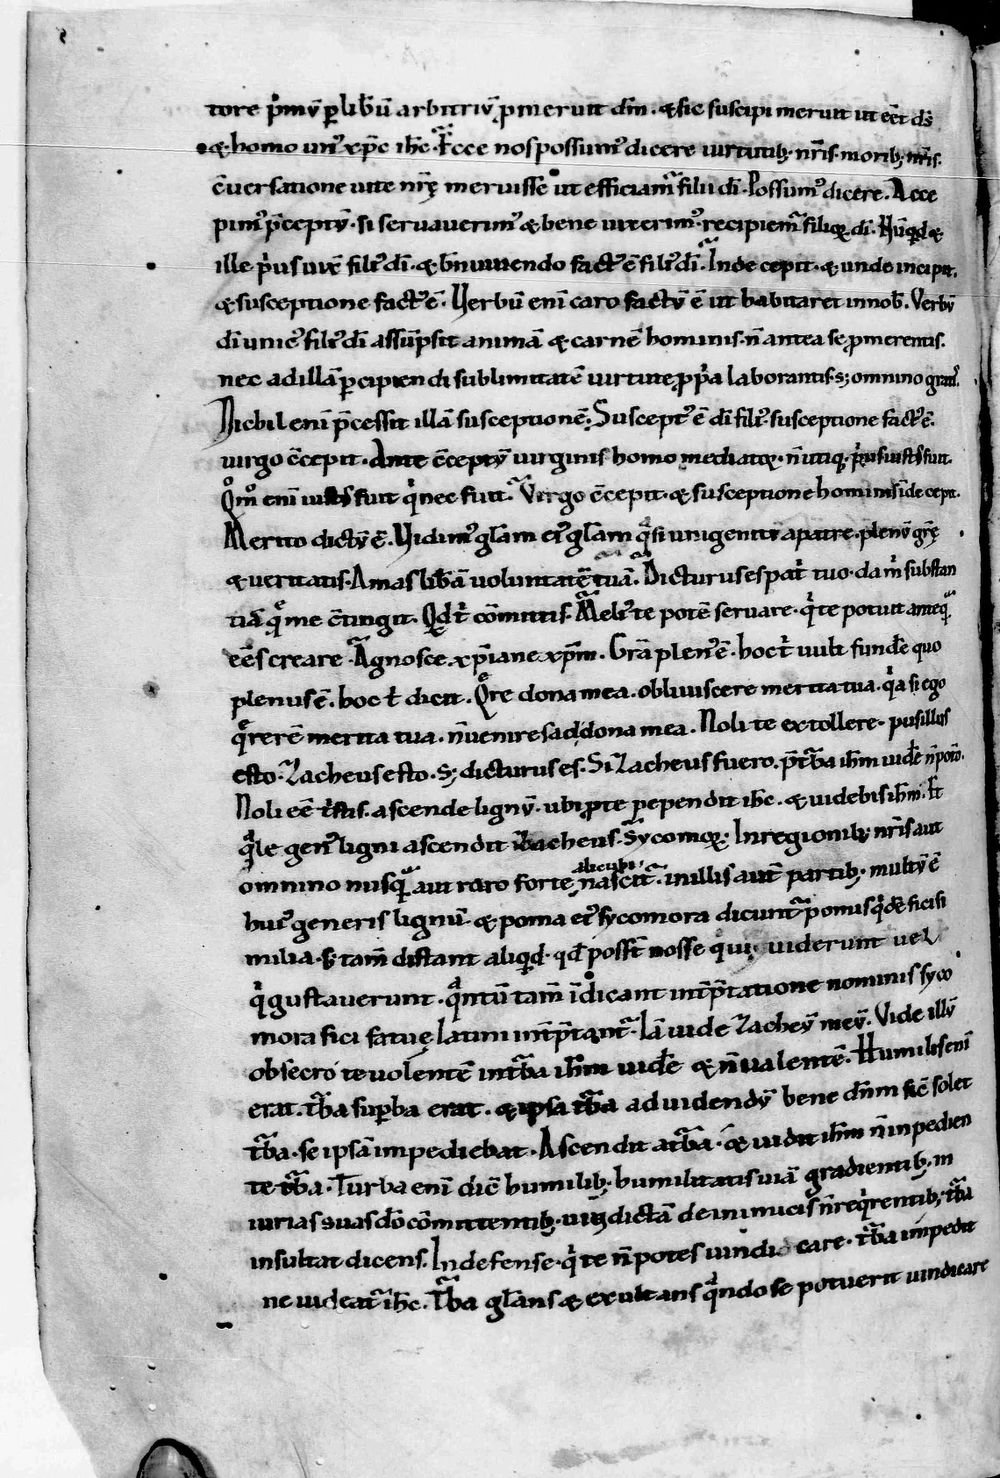 tore p̄mū p̱ libēū arbitriū p̱meruit dm̄. & sic suscipi meruit ut eēt ds̄
& homo unꝰ xp̄c ih̄c. Ecce nos possumꝰ dicere uirtutib; nr̄is. morib; nr̄is.
c̄uersatione uite nr̄ę meruisse ut efficiam̃ filii dī. Possumꝰ dicere. Acce
pimꝰ p̄ceptū. si seruauerimꝰ & bene uixerimꝰ. recipiem̃ filiiq; dī. Nūqd &
ille p̄us uix̄ filiꝰ dī. & bn̄ uiuendo factꝰ ē filiꝰ dī. Inde cepit. & unde incipit.
& susceptione factꝰ ē. Uerbū enī caro factū ē ut habitaret in nob̄. Verbū
dī unicꝰ filiꝰ dī assūpsit animā & carnē hominis. n̄ antea se p̱merentis.
nec ad illā p̱cipiendi sublimitatē uirtute p̱p̄a laborantis. s; omnino gratis.
Nichil enī p̄cessit illā susceptionē. Susceptꝰ ē dī filiꝰ. susceptione factꝰ ē.
uirgo c̄cepit. Ante c̄ceptū uirginis homo mediator. n̄ utiq; p̄us iustꝰ fuit.
Qm̊ enī iustꝰ fuit q̇ nec fuit. Virgo c̄cepit. & susceptione hominis īde cepit.
Merito dictū ē. Uidimꝰ gl̄am eiꝰ gl̄am q̃si unigeniti a patre. plenū gr̄ę
& ueritatis. Amas libēā uoluntatē tuā. Dicturus es patr̄ tuo. da m̄ substan
tiā q̃ me c̄tingit. Qd t̄ cōmittis. Meliꝰ te potē seruare. q̇ te potuit anteq̃
eēs creare. Agnosce xp̄iane xp̄m. Gr̄a plenꝰ ē. hoc t̄ uult fundē quo
plenus ē. hoc t̄ dicit. Q̃re dona mea. obliuiscere merita tua. q̇a si ego
q̃rerē merita tua. n̄ uenires ad dona mea. Noli te extollere. pusillus
esto. Zacheus esto. S; dicturus es. Si Zacheus fuero. p̄ t̄ba ih̄m uidē n̄ potō.
Noli eē t̄stis. ascende lignū. ubi p̱ te pependit ih̄c. & uidebis ih̄m. Et
q̃le genꝰ ligni ascendit Zacheus. Sycomoꝝ. In regionib; nr̄is aut
omnino nusq̃ aut raro forte alicubi nascit̃. in illis aut̄ partib;. multū ē
huiꝰ generis lignū. & poma eiꝰ sycomora dicunt̃ pomis q̇dē fici si
milia. s; tam̄ distant aliqd. qd̄ posst̄ nosse qui uiderunt uel
q̇ gustauerunt. q̃ntū tam̄ īdicant int̄p̄tatione nominis syco
mora fici fatuę latini int̄p̄tant̃. Iā uide Zacheū meū. Vide illū
obsecro te uolentē in t̄ba ih̄m uidē & n̄ ualentē. Humilis enī
erat. t̄ba sup̱ba erat. & ipsa t̄ba ad uidendū bene dn̄m sic̄ solet
t̄ba. se ipsā impediebat. Ascendit a t̄ba. & uidit ih̄m n̄ inpedien
te t̄ba. Turba enī dic̄ humilib;. humilitatis uiā gradientib;. in
iurias suas dō cōmittentib;. uindictā de inimicis n̄ req̇rentib;. t̄ba
insultat dicens. Indefense. q̇ te n̄ potes uindi care. t̄ba impedit
ne uideat̃ ih̄c. T̄ba gl̄ans & exultans q̃ndo se potuerit uindicare